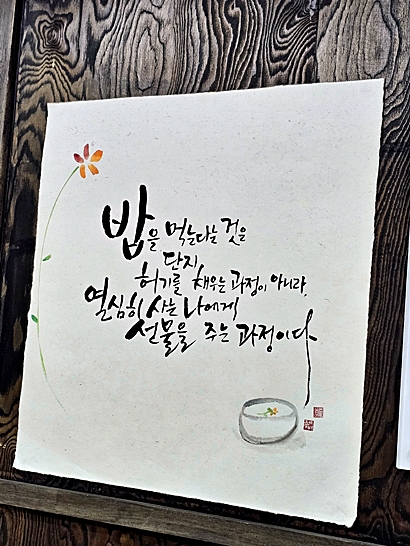 밥을 먹는다는 것은
단지
허기를 채우는 과정이 아니라,
열심히 사는 나에게
선물을 주는 과정이다